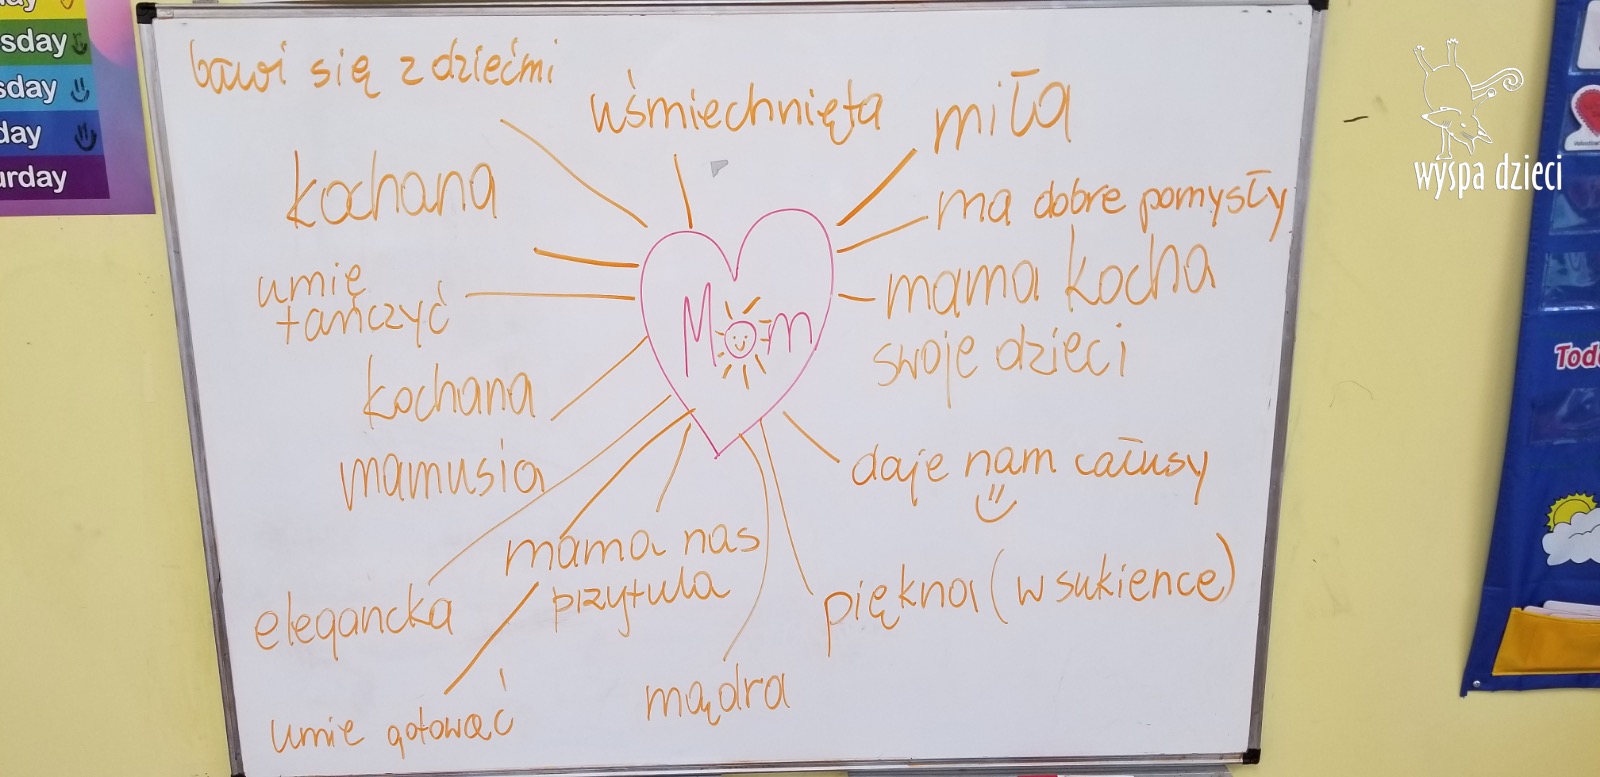 bawi się z dziećmi
uśmiechnięta
miła
kochana
ma dobre pomysły
umie
tańczyć
mama kocha
swoje dzieci
Mom
kochana
mamusia
daje nam całusy
mama nas
przytula
piękna (w sukience)
elegancka
mądra
umie gotować
sday
sday
day
urday
wyspa dzieci
Tod